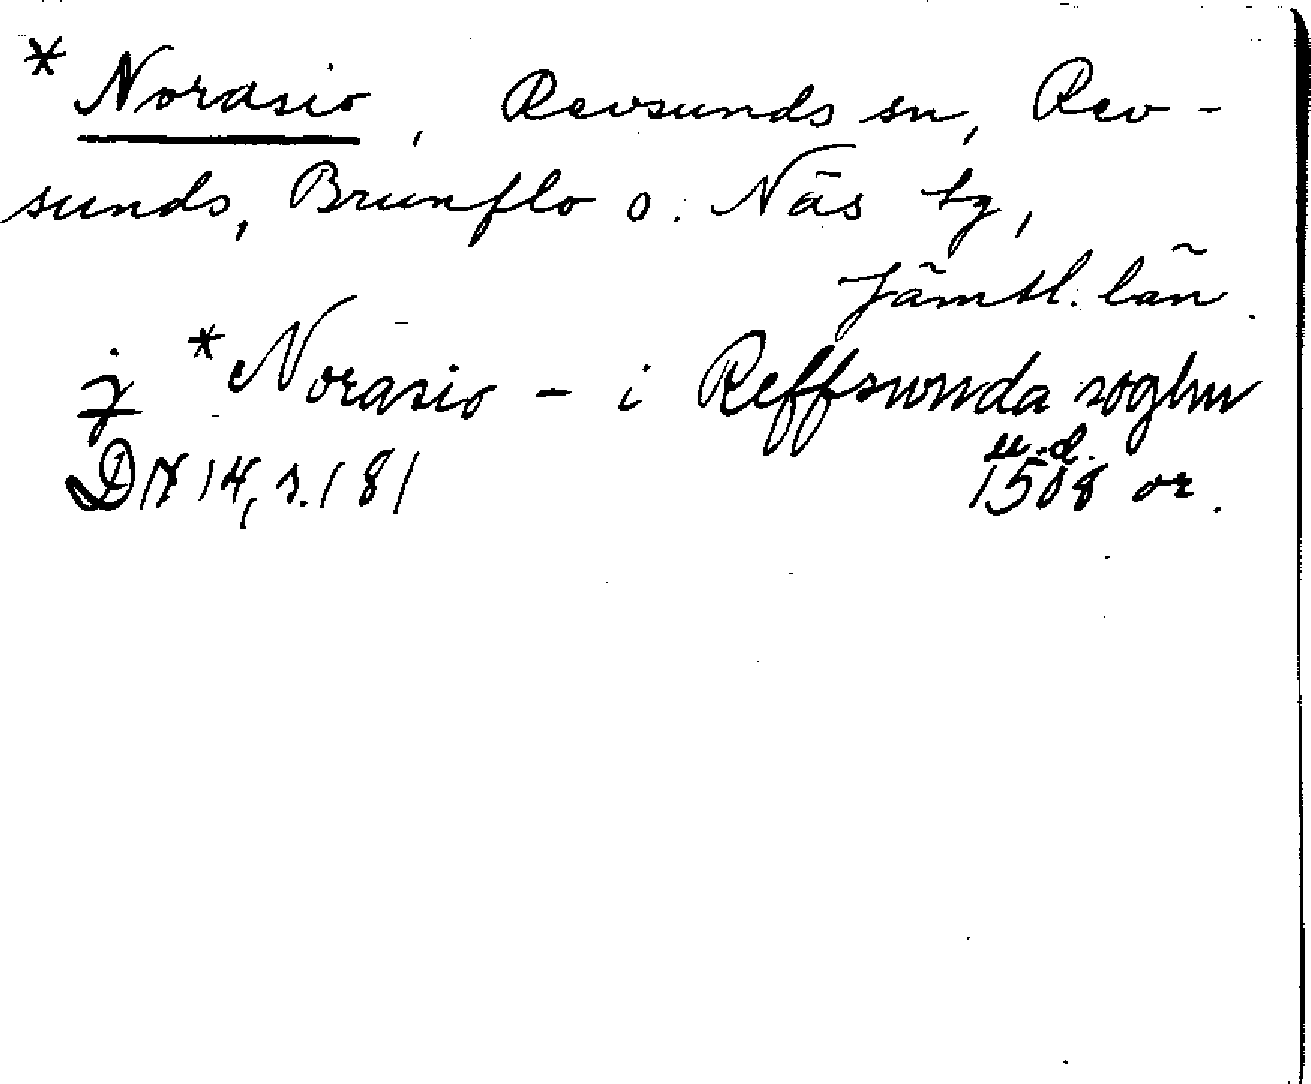 * Norasio, Revsunds sn, Rev-
sunds, Brunflo o. Näs tg,
Jämtl. län.
j *Norasio - i Reffsunda soghn
u.d.
DN 14, s. 181 1508 or.